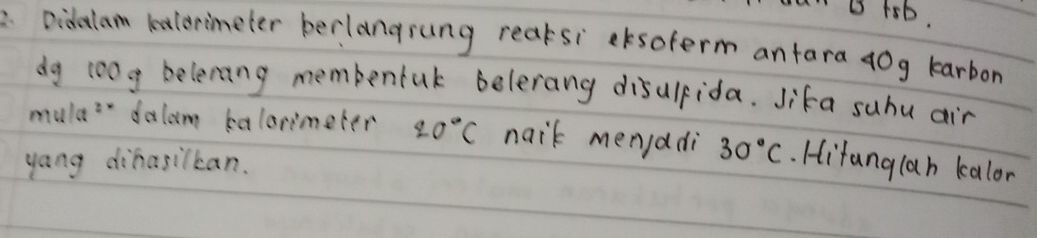 B tsb.
2. Didalam kalorimeter berlangsung reaksi eksoterm antara 40g karbon
dg 100g belerang membentuk belerang disulfida. Jika suhu air
mula²" dalam kalorimeter 20°C naik menjadi 30°C. Hitunglah kalor
yang dihasilkan.